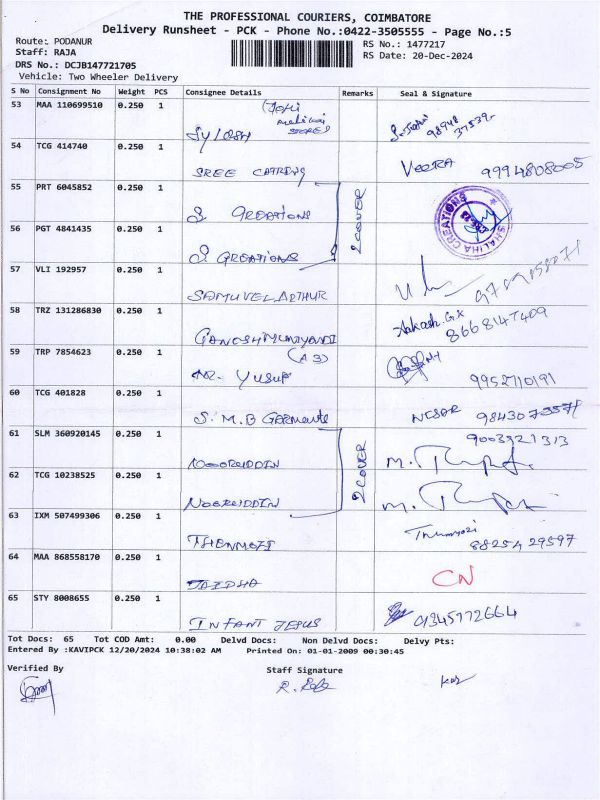 THE PROFESSIONAL COURIERS, COIMBATORE
Delivery Runsheet - PCK - Phone No.:0422-3505555 - Page No.:5
Route: PODANUR
RS No.: 1477217
Staff: RAJA
RS Date: 20-Dec-2024
DRS No.: DCJB147721705
Vehicle: Two Wheeler Delivery
S No Consignment No Weight PCS Consignee Details Remarks Seal & Signature
53 MAA 110699510 0.250 1
SYLESH
54 TCG 414740 0.250 1 SREE VEERA 9994808005
55 PRT 6045852 0.250 1 S CREATIONS 2 COVER
SHALIHA CREATIONS
56 PGT 4841435 0.250 1 S CREATIONS
57 VLI 192957 0.250 1 SAMUVEL ARTHUR
58 TRZ 131286830 0.250 1 GANESH MUNIYANDI Aakash.G.K 8668147409
59 TRP 7854623 0.250 1 (A3)
MR. YUSUF 9952710191
60 TCG 401828 0.250 1 S.M.B Garments NISAR
61 SLM 360920145 0.250 1 NOORUDDIN 2 COVER 9003321313
62 TCG 10238525 0.250 1 NOORUDDIN
63 IXM 507499306 0.250 1 THENMOZI 88254 29597
64 MAA 868558170 0.250 1 CN
65 STY 8008655 0.250 1 INFANT JESUS 01345772664
Tot Docs: 65 Tot COD Amt: 0.00 Delvd Docs: Non Delvd Docs: Delvy Pts:
Entered By :KAVIPCK 12/20/2024 10:38:02 AM Printed On: 01-01-2009 00:30:45
Verified By Staff Signature